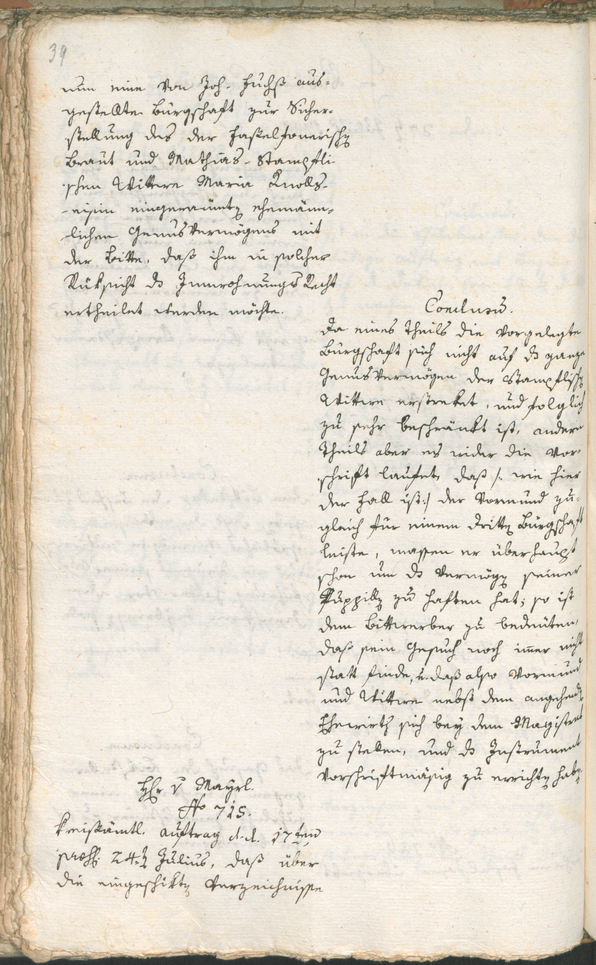 39
nun eine von Joh. Fuchß aus-
gestellte Bürgschaft zur Sicher-
stellung des der
Braut und Mathias-Stampfli-
schen Wittwe Maria Knolls-
-eisin eingeraumtn ehemänn-
lichen Genusvermögens mit
der Bitte, daß ihm in solcher
Rüksicht ds Innwohnungs Recht
ertheilet werden möchte.
Conclusum.
Da eines Theils die vorgelegte
Bürgschaft sich nicht auf ds ganze
Genusvermögen der Stampflischn
Wittwe erstreket, und folglich
zu sehr beschränkt ist, andern
Theils aber es wider die Vor-
schrift laufete daß /: wie hier
der Fall ist :/ der Vormund zu-
gleich für einem drittn Bürgschaft
leiste, massen er überhaupt
schon um ds Vermögn seiner
Puppilln zu haften hat; so ist
dem Bittwerber zu bedeuten,
daß sein Gesuch noch imer nicht
statt finde, u. daß also Vormund
und Wittwe nebst dem angehenden
Ehewirth sich bey dem Magistrat
zu stellen, und ds Instrument
vorschriftmäsig zu errichtn habn.
Hr. v Mayrl.
No 715.
Kreisämtl. Auftrag d.d. 17ten
praes. 24. Julius, daß über
die eingeschiktn Verzeichnisse